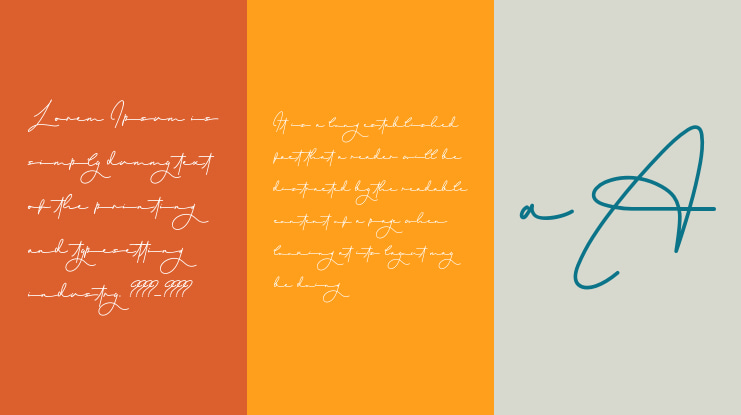 Lorem Ipsum is
simply dummy text
of the printing
and typesetting
industry. ????_????
It is a long established
fact that a reader will be
distracted by the readable
content of a page when
at its layout may
be
a A